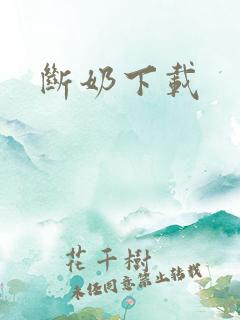 斷奶下載
花千樹
未經同意禁止轉載